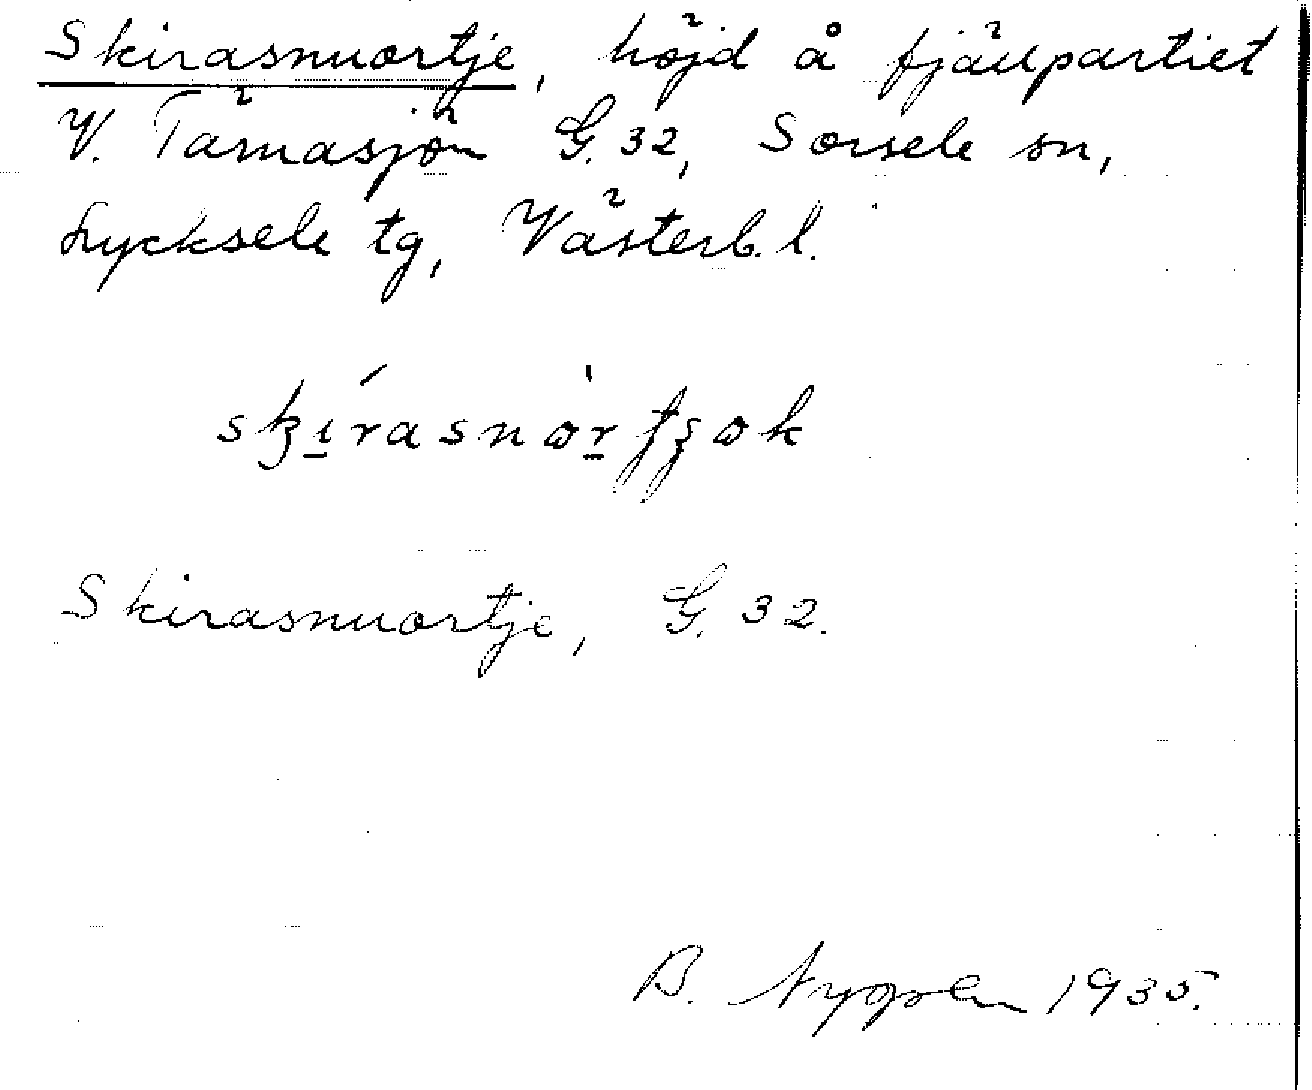 Skirasnuortje, höjd å fjällpartiet
V. Tämasjön G. 32, Sorsele sn,
Lycksele tg, Västerb. l.
Skirasnuortje, G. 32.
B. Nygren 1935.